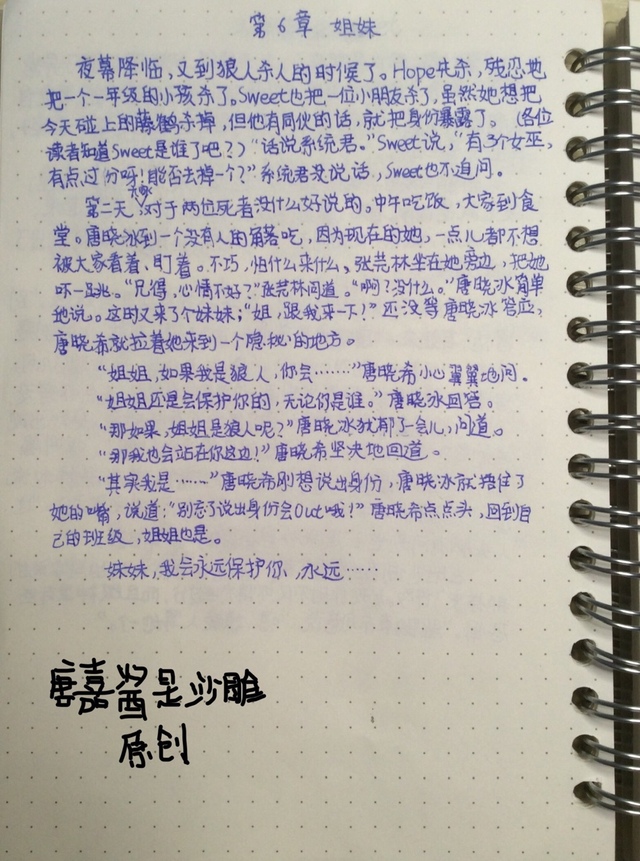 第6章 姐妹
夜幕降临,又到狼人杀人的时候了。Hope先杀,残忍地
把一个一年级的小孩杀了。Sweet也把一位小朋友杀了,虽然她想把
今天碰上的藤鹤杀掉,但他有同伙的话,就把身份暴露了。(各位
读者知道Sweet是谁了吧?)“话说系统君。”Sweet说,“有3个女巫,
有点过分呀!能否去掉一个?”系统君没说话,Sweet也不追问。
第二天,大家对于两位死者没什么好说的。中午吃饭,大家到食
堂。唐晓冰到一个没有人的角落吃,因为现在的她,一点儿都不想
被大家看着、盯着。不巧,怕什么来什么。张芸林坐在她旁边,把她
吓一跳。“兄得,心情不好?”张芸林问道。“啊?没什么。”唐晓冰简单
地说。这时又来了个妹妹;“姐,跟我来一下!”还没等唐晓冰答应,
唐晓希就拉着她来到一个隐秘的地方。
“姐姐,如果我是狼人,你会……”唐晓希小心翼翼地问。
“姐姐还是会保护你的,无论你是谁。”唐晓冰回答。
“那如果,姐姐是狼人呢?”唐晓冰犹郁了一会儿,问道。
“那我也会站在你这边!”唐晓希坚决地回道。
“其实我是……”唐晓希刚想说出身份,唐晓冰就捂住了
她的嘴,说道:“别忘了说出身份会Out哦!”唐晓希点点头,回到自
己的班级,姐姐也是。
妹妹,我会永远保护你,永远……
唐嘉酱是沙雕
原创